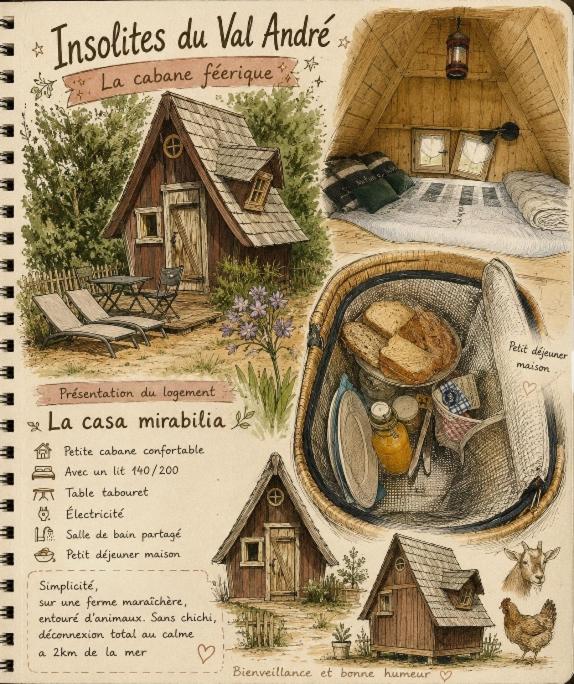 Insolites du Val André
La cabane féerique
Petit déjeuner
maison
Présentation du logement
La casa mirabilia
Petite cabane confortable
Avec un lit 140/200
Table tabouret
Électricité
Salle de bain partagé
Petit déjeuner maison
Simplicité,
sur une ferme maraîchère,
entouré d'animaux. Sans chichi,
déconnexion total au calme
a 2km de la mer
Bienveillance et bonne humeur